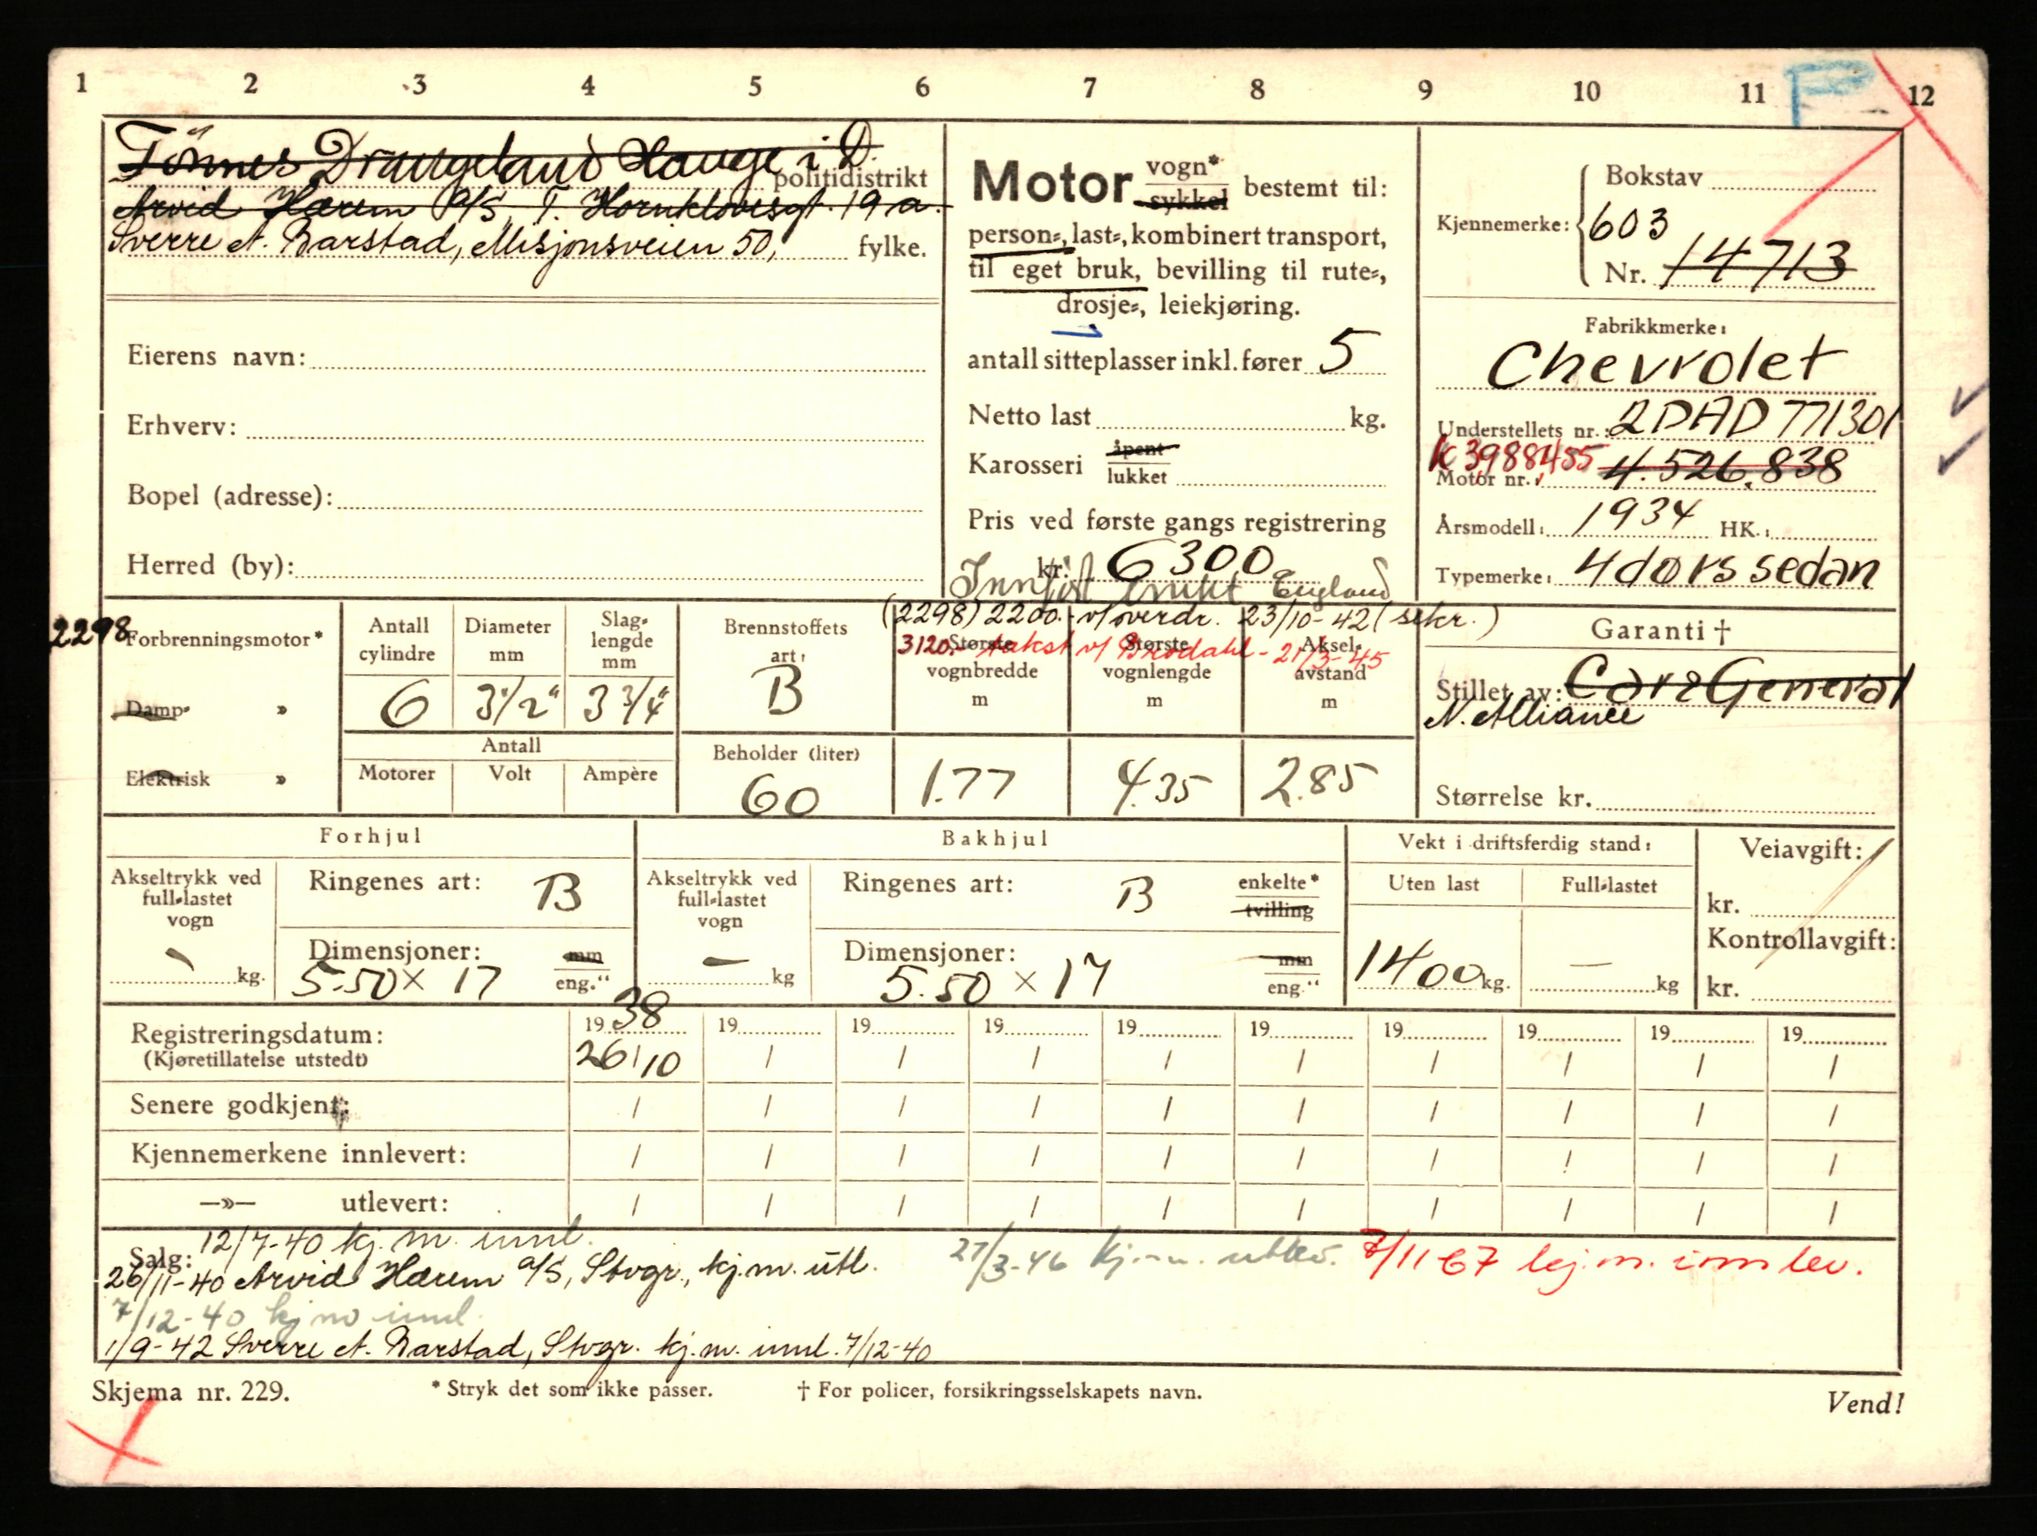 1 2 3 4 5 6 7 8 9 10 11 12
Tönnes Drangeland Hauge i D.
politidistrikt
Arvid Hærem A/S, T. Hornklovesgt. 19 a.
Sverre A. Barstad, Misjonsveien 50, fylke.
Eierens navn:
Erhverv:
Bopel (adresse):
Herred (by):
Motor vogn* sykkel bestemt til:
person-, last-, kombinert transport,
til eget bruk, bevilling til rute-,
drosje-, leiekjøring.
antall sitteplasser inkl. fører 5
Netto last kg.
Karosseri åpent lukket
Pris ved første gangs registrering
kr. 6300
Innført brukt England
Bokstav
Kjennemerke: 603
Nr. 14713
Fabrikkmerke:
Chevrolet
Understellets nr.: 2DAD771301
K3988455 4.526.838
Motor nr.:
Årsmodell: 1934 HK.:
Typemerke: 4dørs sedan
(2298) 2200.- v/overdr. 23/10-42 (sekr.)
3120.- takst v/ Brodahl - 21/3-45
2298
Forbrenningsmotor*
Damp- »
Elektrisk »
Antall cylindre
6
Diameter mm
3 1/2"
Slag-lengde mm
3 3/4"
Antall
Motorer Volt Ampère
Brennstoffets art:
B
Beholder (liter)
60
Største vognbredde m
1.77
Største vognlengde m
4.35
Aksel-avstand m
2.85
Garanti †
Stillet av: Car & General
N. Alliance
Størrelse kr.
Forhjul
Akseltrykk ved full-lastet vogn
kg.
Ringenes art: B
Dimensjoner: mm
5.50 x 17 eng."
Bakhjul
Akseltrykk ved full-lastet vogn
— kg
Ringenes art: B enkelte* tvilling
Dimensjoner: mm
5.50 x 17 eng."
Vekt i driftsferdig stand:
Uten last Full-lastet
1400 kg. — kg
Veiavgift:
kr.
Kontrollavgift:
kr.
Registreringsdatum: 19 38 19 19 19 19 19 19 19 19 19
(Kjøretillatelse utstedt) 26/10 / / / / / / / / /
Senere godkjent: / / / / / / / / / /
Kjennemerkene innlevert: / / / / / / / / / /
—»— utlevert: / / / / / / / / / /
Salg: 12/7-40 kj. m. innl.
26/11-40 Arvid Hærem A/S, Stvgr., kj.m. utl. 27/3-46 kj.m. utlev. 7/11 67 kj.m. innlev.
7/12-40 kj m innl.
1/9-42 Sverre A. Barstad, Stvgr. kj.m. innl. 7/12-40
Skjema nr. 229. * Stryk det som ikke passer. † For policer, forsikringsselskapets navn.
Vend!